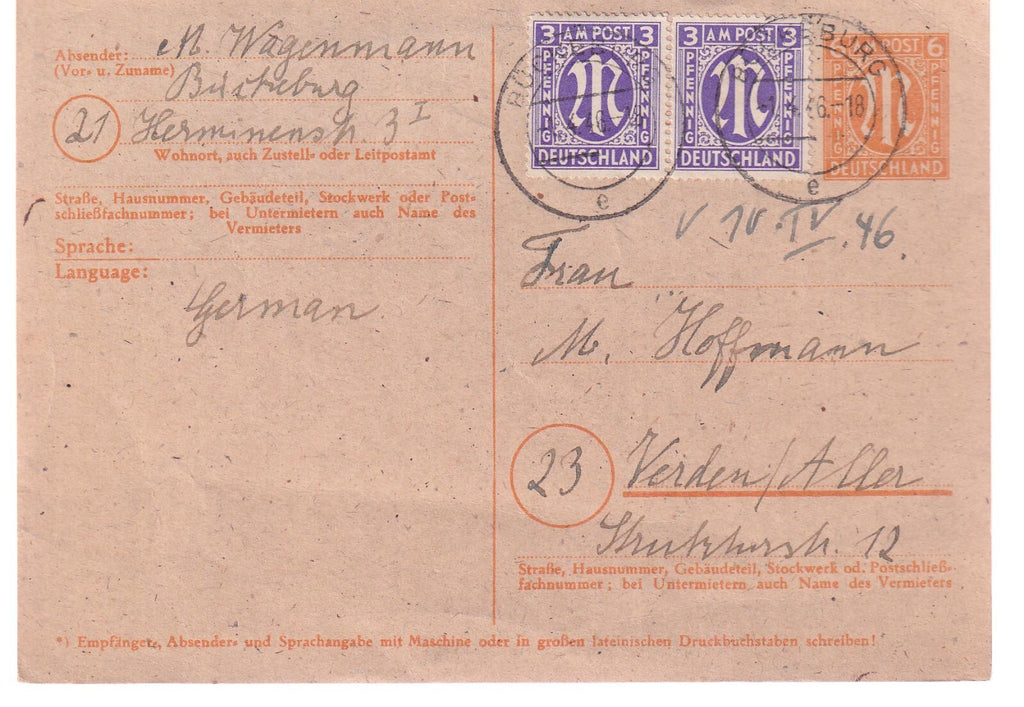 Absender: M. Wagenmann
(Vor- u. Zuname) Bückeburg
21 Herminenstr. 3 I
Wohnort, auch Zustell- oder Leitpostamt
Straße, Hausnummer, Gebäudeteil, Stockwerk oder Post-
schließfachnummer; bei Untermietern auch Name des
Vermieters
Sprache:
Language:
German.
3 AM POST 3
PFENNIG PFENNIG
DEUTSCHLAND
3 AM POST 3
PFENNIG PFENNIG
DEUTSCHLAND
POST 6
PFENNIG PFENNIG
DEUTSCHLAND
e
46.-18
e
V 10. IV. 46
Frau
M. Hoffmann
23 Verden/Aller
12
Straße, Hausnummer, Gebäudeteil, Stockwerk od. Postschließ-
fachnummer; bei Untermietern auch Name des Vermieters
*) Empfänger-, Absender- und Sprachangabe mit Maschine oder in großen lateinischen Druckbuchstaben schreiben!